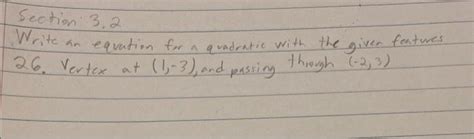 Section 3.2
Write an equation for a quadratic with the given features
26. Vertex at (1,-3), and passing through (-2,3)